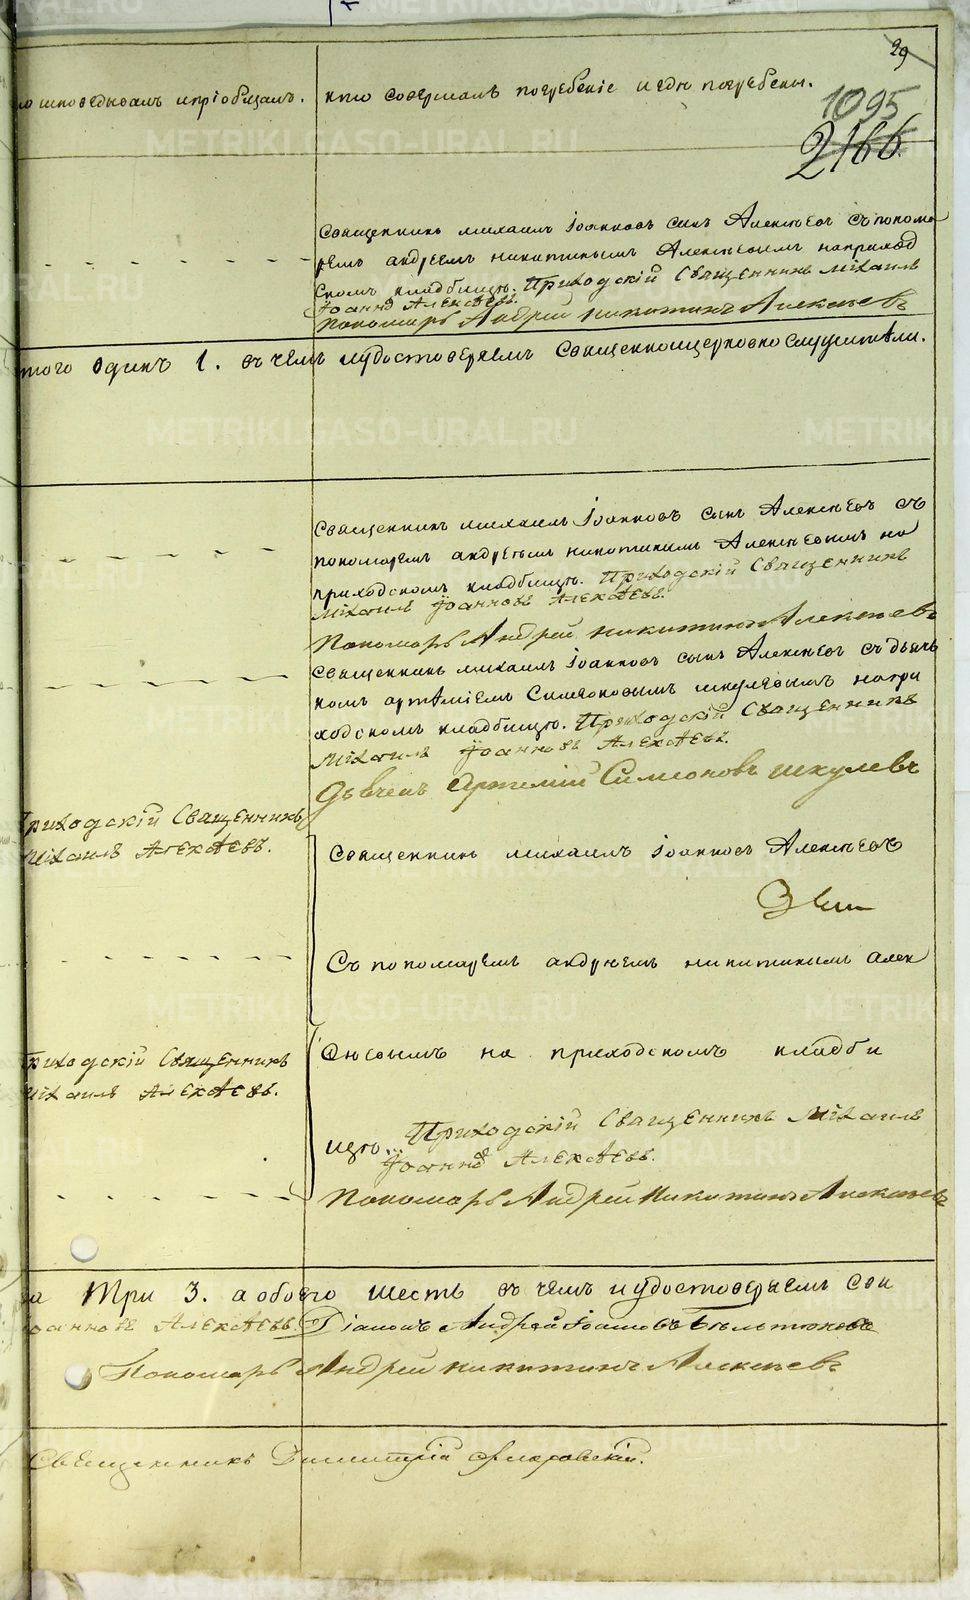 29
то исповедывалъ и пріобщалъ.
кто совершалъ погребеніе и где погребены.
1095
2166
Священникъ михаилъ іоанновъ сынъ Алексѣевъ съ понома
ремъ андреемъ никитинымъ Алексѣевымъ наприход
скомъ кладбищѣ. Приходскій Священникъ Міхаилъ
Іоанновъ Алексѣевъ.
Пономарь Андрей никитинъ Алексѣевъ
того одинъ 1. въ чемъ и удостоверяемъ Священноицерковно служители.
Священникъ михаилъ Іоанновъ сынъ Алексѣевъ съ
пономаремъ андреемъ никитинымъ Алексѣевымъ на
приходскомъ кладбищѣ. Приходскій Священникъ
Міхаилъ Іоанновъ Алексѣевъ.
Пономарь Андрей никитинъ Алексѣевъ
Священникъ михаилъ іоанновъ сынъ Алексѣевъ съ дьяч
комъ артеміемъ Симеоновымъ шкулевымъ напри
ходскомъ кладбищѣ. Приходскій Священникъ
Міхаилъ Іоанновъ Алексѣевъ.
Дьячекъ Артемій Симеоновъ шкулевъ
Приходскій Священникъ
Міхаилъ Алексѣевъ.
Священникъ михаилъ іоанновъ Алексѣевъ
Съ пономаремъ андреемъ никитинымъ алек
сѣевымъ на приходскомъ кладби
Приходскій Священникъ
Міхаилъ Алексѣевъ.
щѣ. Приходскій Священникъ Міхаилъ
Іоанновъ Алексѣевъ.
Пономарь Андрей Никитинъ Алексѣевъ
Три 3. а обоего шесть въ чемъ и удостоверяемъ Свя
Іоанновъ Алексѣевъ Діаконъ Андрей Іоанновъ Бельтюковъ
Пономарь Андрей никитинъ Алексѣевъ
Священникъ Димитрій
METRIKI.GASO-URAL.RU